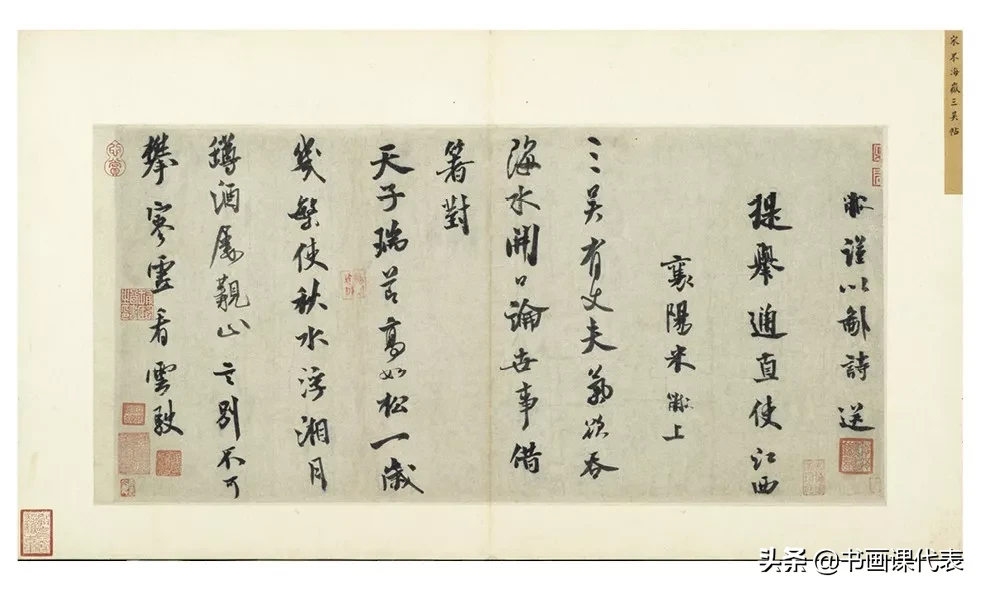 宋米海嶽三吳帖
黻謹以鄙詩送
提舉通直使江西
襄陽米黻上
三吳有丈夫氣欲吞
海水開口論世事借
箸對
天子瑞節高如松一歲
幾繁使秋水浮湘月
罇酒屢覯止言別不可
攀寥靈看雲駛
头条 @书画课代表